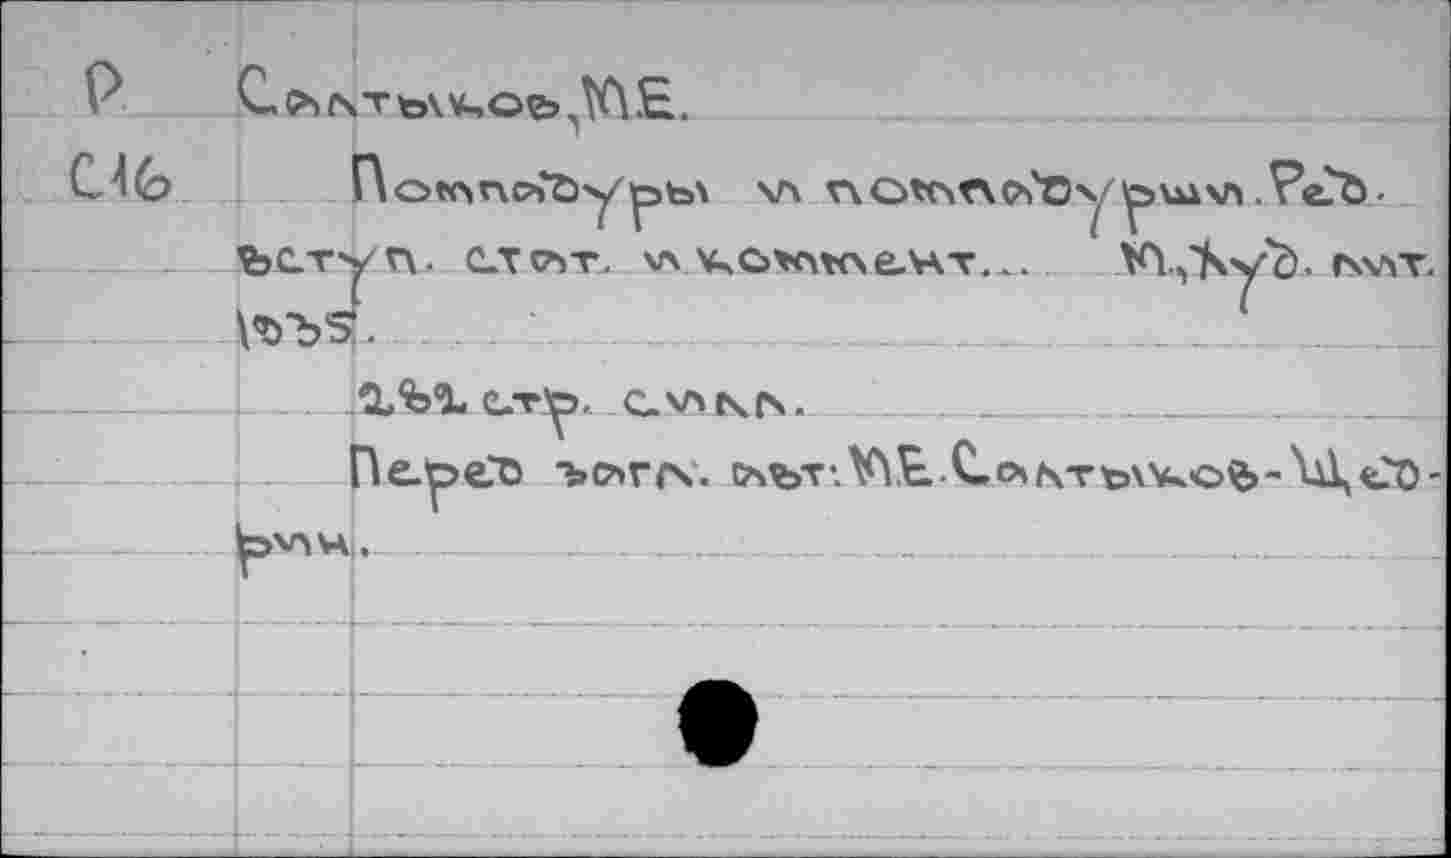 Р Салтыков, М.Е.
С16 Помпадуры и помпадурши. Ред.
вступ. стат. и коммент... М., Худ. лит.
1935.
292 стр. илл.
Перед загл. авт: М.Е. Салтыков-Щед-
рин.